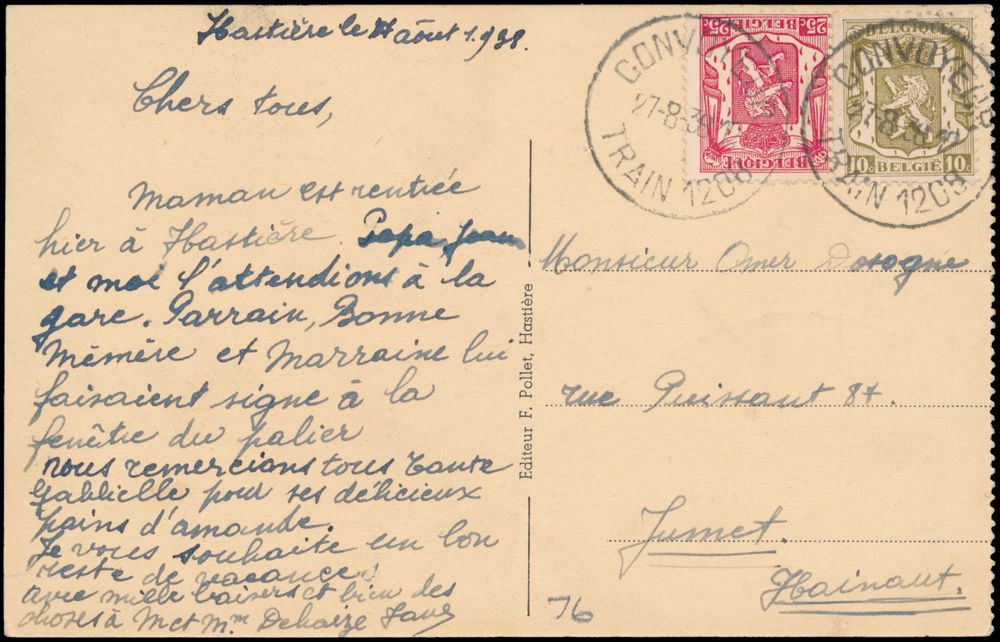 Hastière le août 1938.
Chers tous,
Maman est rentrée
hier à Hastière. Papa, Jean
et moi l'attendions à la
gare. Parrain, Bonne
Mémère et Marraine lui
faisaient signe à la
fenêtre du palier
nous remercions tous tante
Gabbielle pour ses délicieux
pains d'amande.
Je vous souhaite un bon
reste de vacances
avec mille baisers et bien des
choses à M et Mme Dehaize
Editeur F. Pollet, Hastière
25c BELGIQUE 25c
BELGIQUE
BELGIE
10c BELGIË 10c
CONVOYEUR
27-8-38
TRAIN 1208
CONVOYEUR
27-8-38
TRAIN 1208
Monsieur Omer Dosogne
rue Puissant 87.
Jumet.
Hainaut.
76